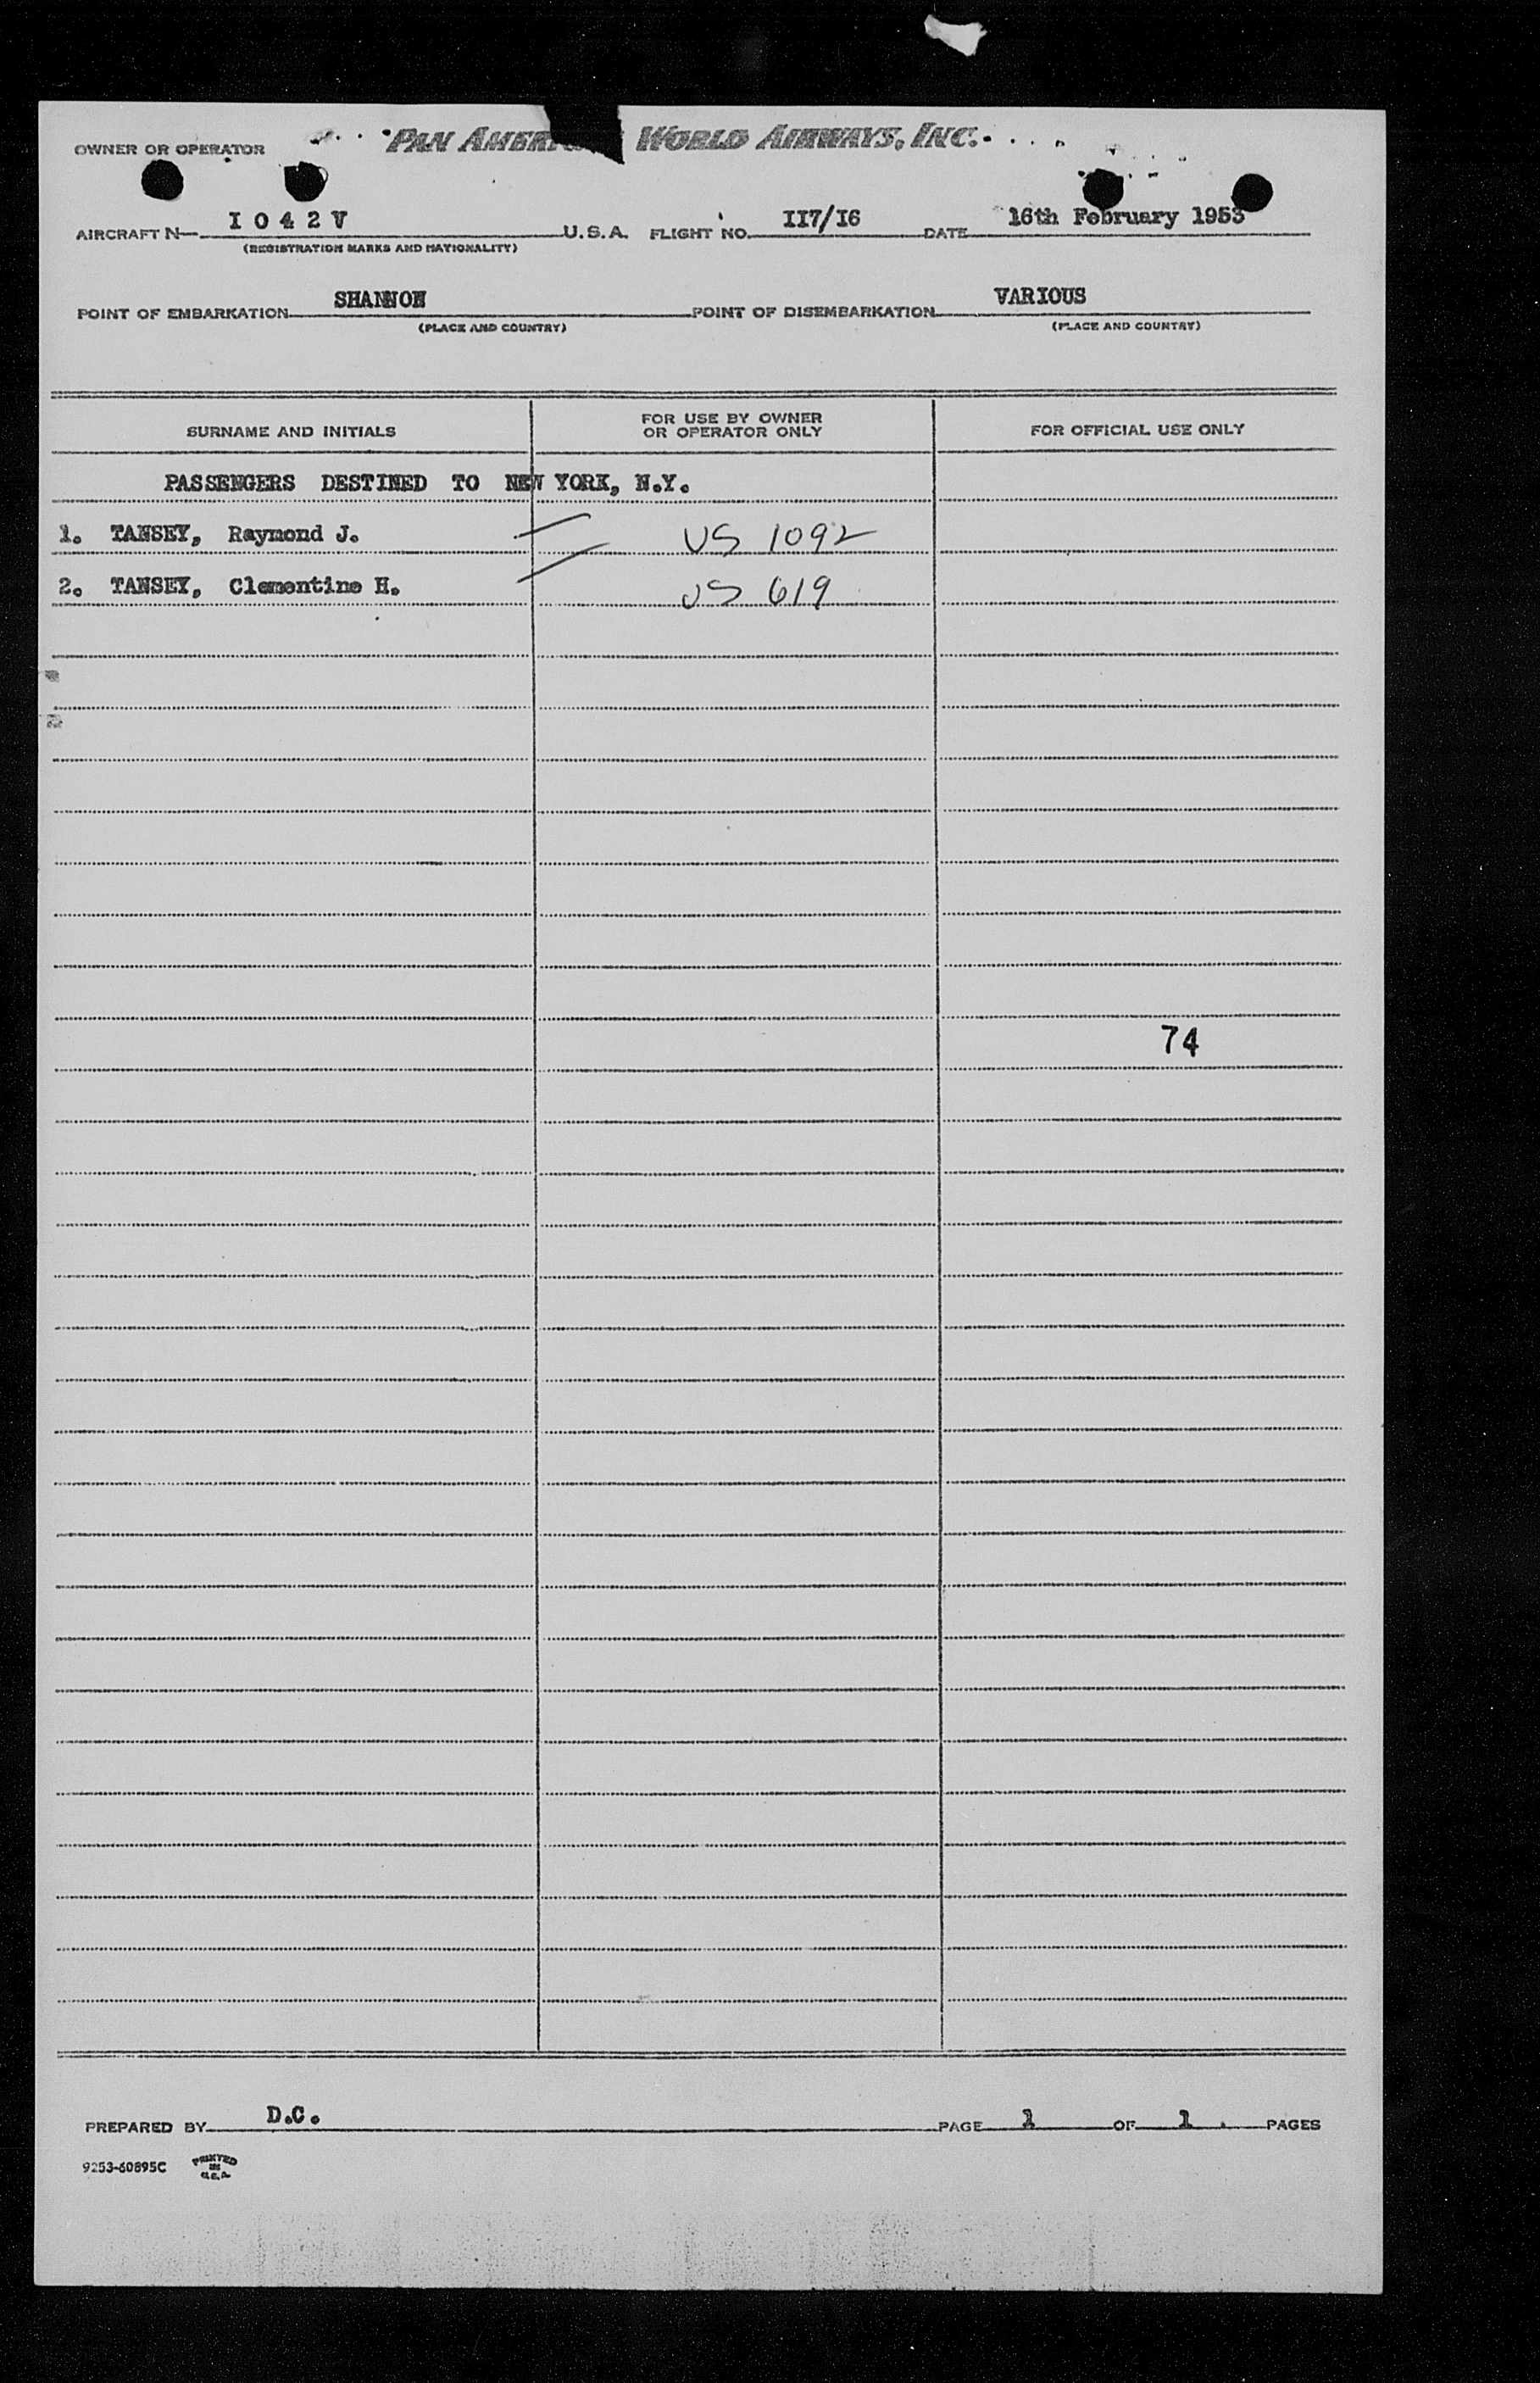 OWNER OR OPERATOR PAN AMERI WORLD AIRWAYS, INC.
AIRCRAFT N- I 0 4 2 V U.S.A. FLIGHT NO. II7/I6 DATE 16th February 1953
(REGISTRATION MARKS AND NATIONALITY)
POINT OF EMBARKATION SHANNON POINT OF DISEMBARKATION VARIOUS
(PLACE AND COUNTRY) (PLACE AND COUNTRY)
SURNAME AND INITIALS FOR USE BY OWNER OR OPERATOR ONLY FOR OFFICIAL USE ONLY
PASSENGERS DESTINED TO NEW YORK, N.Y.
1. TANSEY, Raymond J. US 1092
2. TANSEY, Clementine H. US 619
74
PREPARED BY D.C. PAGE 1 OF 1. PAGES
9253-60895C PRINTED IN U.S.A.